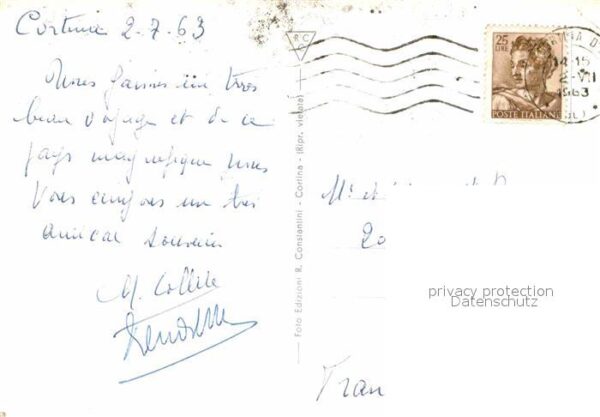 Cortina 2-7-63
Nous faisons un très
beau voyage et de ce
pays magnifique nous
vous envoyons un très
amical souvenir
M. Collile
R C
C
Foto Edizioni R. Constantini - Cortina - (Ripr. vietata)
25
LIRE
POSTE ITALIANE
14-15
2-VII
1963
Mr et
20
Fran
privacy protection
Datenschutz